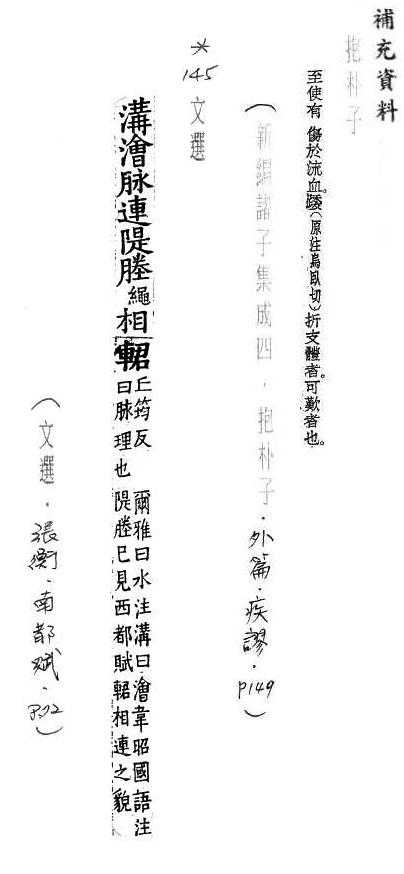 補充資料
抱朴子
至使有傷於流血。踒(原注烏臥切)折支體者。可歎者也。
(新編諸子集成四.抱朴子.外篇.疾謬.P149)
*145 文選
溝澮脉連隄塍繩相輑
丘筠反 爾雅曰水注溝曰澮韋昭國語注
曰脉理也 隄塍已見西都賦輑相連之貌
(文選.張衡.南都賦.P72)